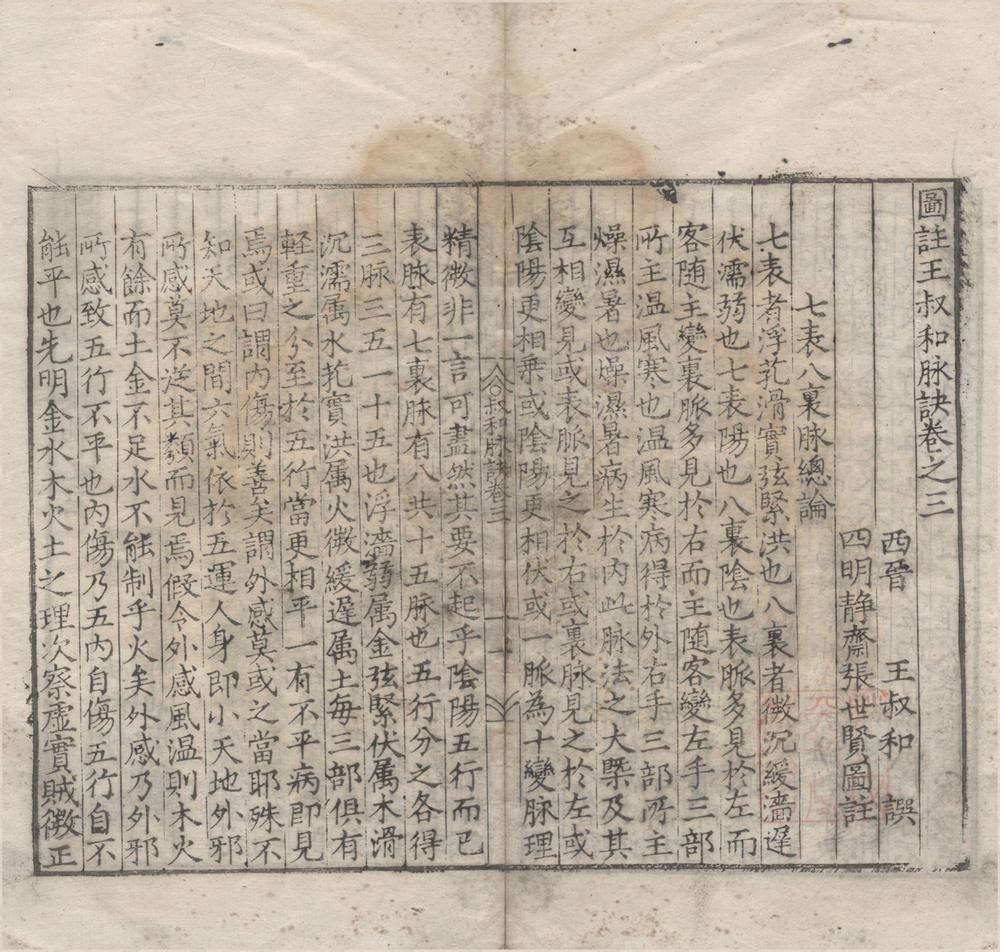 圖註王叔和脉訣卷之三
西晉 王叔和 譔
四明靜齋張世賢圖註
七表八裏脉總論
七表者浮芤滑實弦緊洪也八裏者微沉緩濇遲
伏濡弱也七表陽也八裏陰也表脈多見於左而
客随主變裏脈多見於右而主随客變左手三部
所主温風寒也温風寒病得於外右手三部所主
燥濕暑也燥濕暑病生於内此脉法之大槩及其
互相變見或表脈見之於右或裏脉見之於左或
陰陽更相乗或陰陽更相伏或一脈為十變脉理
叔和脉訣卷三
一
精微非一言可盡然其要不起乎陰陽五行而已
表脉有七裏脉有八共十五脉也五行分之各得
三脉三五一十五也浮濇弱属金弦緊伏属木滑
沉濡属水芤實洪属火微緩遲属土每三部俱有
輕重之分至於五行當更相平一有不平病即見
焉或曰謂内傷則善矣謂外感莫或之當耶殊不
知天地之間六氣依於五運人身即小天地外邪
所感莫不从其類而見焉假令外感風温則木火
有餘而土金不足水不能制乎火矣外感乃外邪
所感致五行不平也内傷乃五内自傷五行自不
能平也先明金水木火土之理次察虚實賊微正